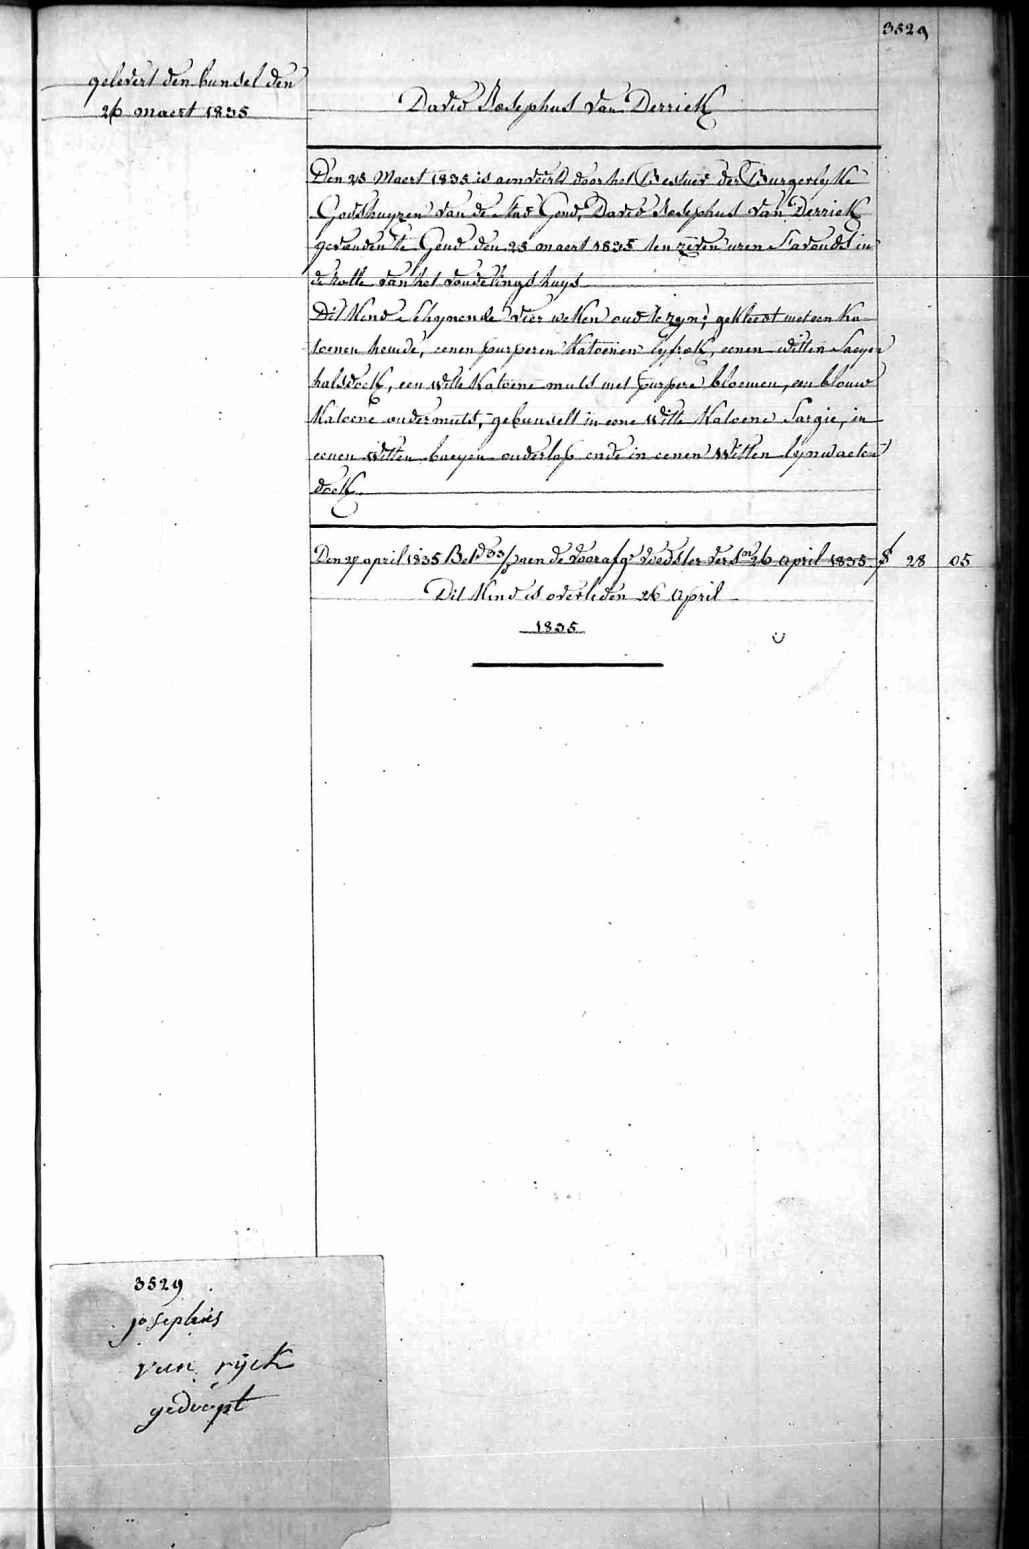 3529
gelevert den bunsel den
26 maert 1835
David Josephus Van Derrick
Den 25 Maert 1835 is aenveird door het Bestuer der Burgerlyke
Godshuyzen van de stad Gend, David Josephus Van Derrick
gevonden te Gend den 25 maert 1835 ten zeven uren s'avonds in
de rolle van het vondelingshuys
Dit Kind schynende vier weken oud te zyn; gekleed met een Ka-
toenen hemde, eenen purperen Katoenen lyfrok, eenen witten Saeyen
halsdoek, een witte Katoene muts met purpere bloemen, een blauw
Katoene ondermuts, gebunselt in eene witte Katoene Sargie, in
eenen witten baeyen onderlap ende in eenen witten lynwaeten
doek.
Den 27 april 1835 Bet. aen de voorafg. voedster vers. 26 April 1835 f 28 05
Dit Kind is overleden 26 April
1835
3529
josephus
van rijck
gedoopt